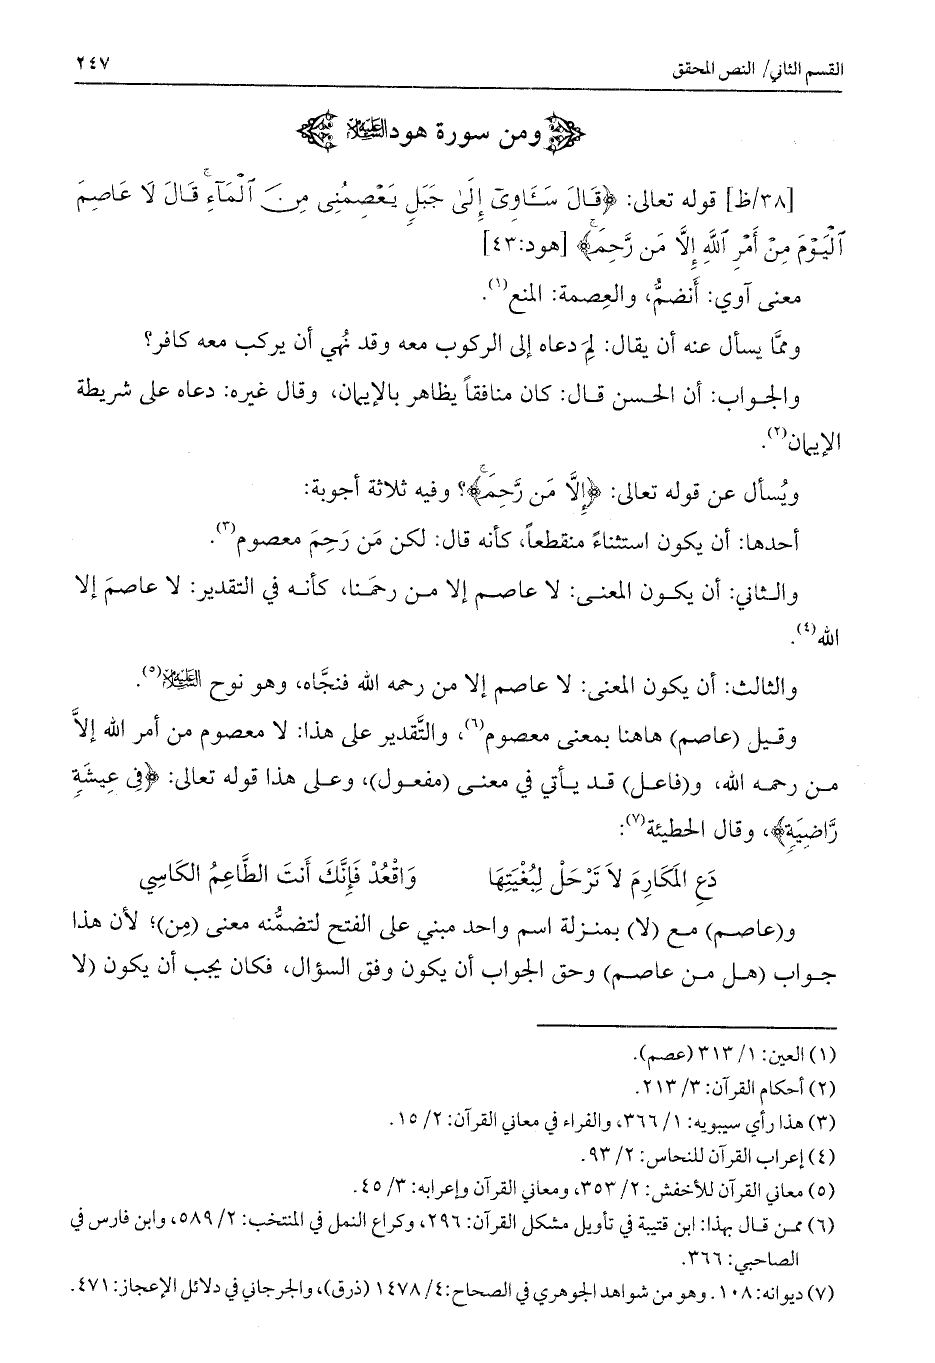 القسم الثاني/ النص المحقق ٢٤٧
ومن سورة هود عليه السلام
[٣٨/ظ] قوله تعالى: ﴿قَالَ سَـَٔاوِىٓ إِلَىٰ جَبَلٍ يَعْصِمُنِى مِنَ ٱلْمَآءِ ۚ قَالَ لَا عَاصِمَ
ٱلْيَوْمَ مِنْ أَمْرِ ٱللَّهِ إِلَّا مَن رَّحِمَ ۚ﴾ [هود:٤٣]
معنى آوي: أَنضمُّ، والعِصمة: المنع(١).
وممَّا يسأل عنه أن يقال: لِمَ دعاه إلى الركوب معه وقد نُهي أن يركب معه كافر؟
والجـواب: أن الحـسن قـال: كان منافقاً يظاهر بالإيمان، وقال غيره: دعاه على شريطة
الإيمان(٢).
ويُسأل عن قوله تعالى: ﴿إِلَّا مَن رَّحِمَ ۚ﴾؟ وفيه ثلاثة أجوبة:
أحدها: أن يكون استثناءً منقطعاً، كأنه قال: لكن مَن رَحِمَ معصوم(٣).
والـثاني: أن يكـون المعنـى: لا عاصـم إلا مـن رحمَـنا، كأنـه في التقدير: لا عاصمَ إلا
الله(٤).
والثالث: أن يكون المعنى: لا عاصم إلا من رحمه الله فنجَّاه، وهو نوح عليه السلام(٥).
وقـيل (عاصم) هاهنا بمعنى معصوم(٦)، والتَّقدير على هذا: لا معصوم من أمر الله إلاَّ
مـن رحمـه الله، و(فاعـل) قـد يـأتي في معنـى (مفعـول)، وعـلى هذا قوله تعالى: ﴿فِى عِيشَةٍ
رَّاضِيَةٍ﴾، وقال الحطيئة(٧):
دَعِ المَكَارِمَ لاَ تَرْحَلْ لِبُغْيَتِهَا وَاقْعُدْ فَإِنَّكَ أَنتَ الطَّاعِمُ الكَاسِي
و(عاصـم) مـع (لا) بمنـزلة اسم واحد مبني على الفتح لتضمُّنه معنى (مِن)؛ لأن هذا
جـواب (هـل مـن عاصـم) وحق الجواب أن يكون وفق السؤال، فكان يجب أن يكون (لا
(١) العين: ١/ ٣١٣ (عصم).
(٢) أحكام القرآن: ٣/ ٢١٣.
(٣) هذا رأي سيبويه: ١/ ٣٦٦، والفراء في معاني القرآن: ٢/ ١٥.
(٤) إعراب القرآن للنحاس: ٢/ ٩٣.
(٥) معاني القرآن للأخفش: ٢/ ٣٥٣، ومعاني القرآن وإعرابه: ٣/ ٤٥.
(٦) ممـن قـال بهذا: ابن قتيبة في تأويل مشكل القرآن: ٢٩٦، وكراع النمل في المنتخب: ٢/ ٥٨٩، وابن فارس في
الصاحبي: ٣٦٦.
(٧) ديوانه: ١٠٨. وهو من شواهد الجوهري في الصحاح: ٤/ ١٤٧٨ (ذرق)، والجرجاني في دلائل الإعجاز: ٤٧١.